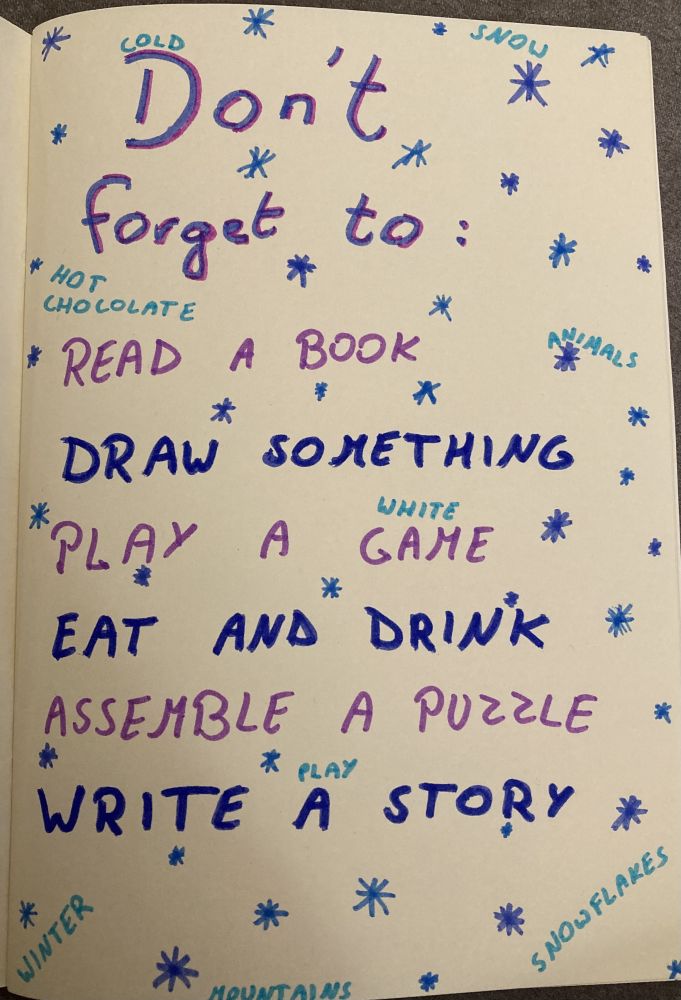 COLD
SNOW
Don't
forget to:
HOT
CHOCOLATE
ANIMALS
READ A BOOK
DRAW SOMETHING
WHITE
PLAY A GAME
EAT AND DRINK
ASSEMBLE A PUZZLE
PLAY
WRITE A STORY
SNOWFLAKES
WINTER
MOUNTAINS